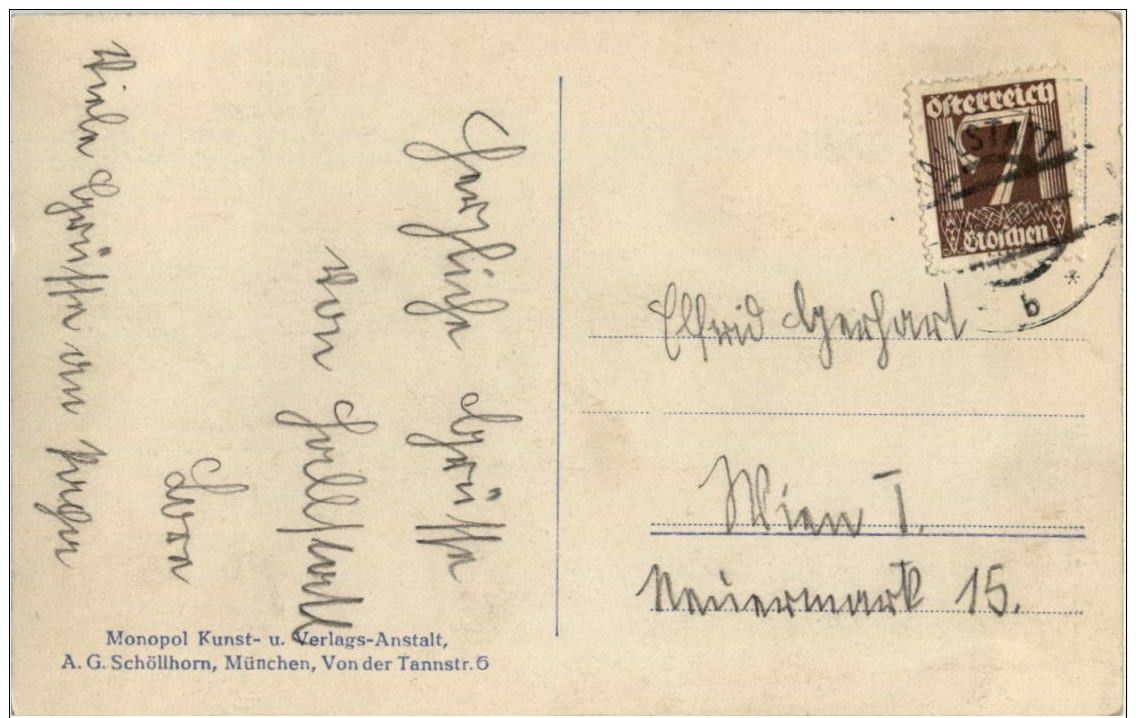 Herzliche Grüsse
von Hallstatt
Dora
Viele Grüsse an
Elfrid Gerhart
Wien I.
Neuermarkt 15.
österreich
7
Groschen
STATT
b
*
Monopol Kunst- u. Verlags-Anstalt,
A. G. Schöllhorn, München, Von der Tannstr. 6